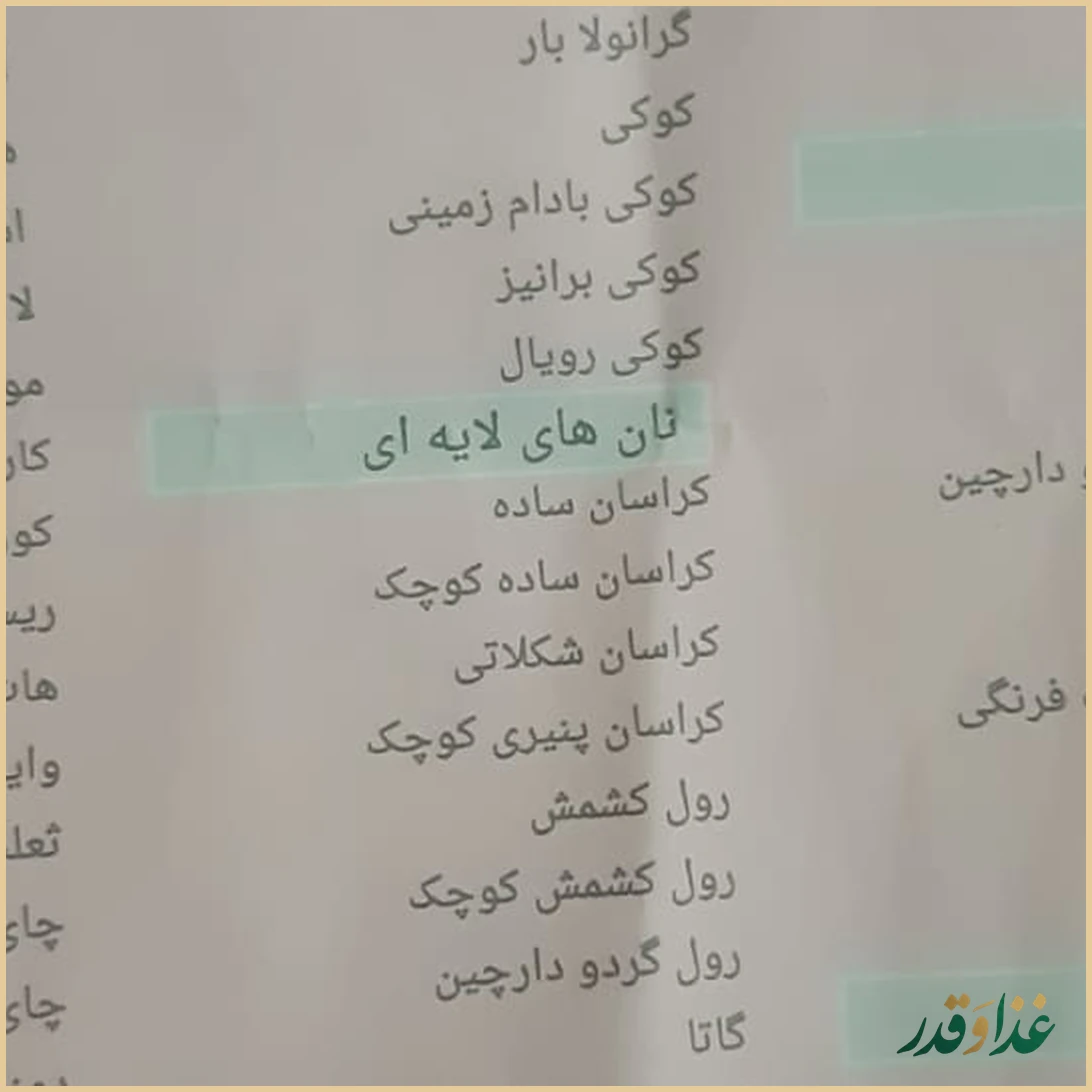 گرانولا بار
کوکی
کوکی بادام زمینی
کوکی برانیز
کوکی رویال
نان های لایه ای
کراسان ساده
کراسان ساده کوچک
کراسان شکلاتی
کراسان پنیری کوچک
رول کشمش
رول کشمش کوچک
رول گردو دارچین
گاتا
دارچین
فرنگی
چای
چای
غذا و قدر